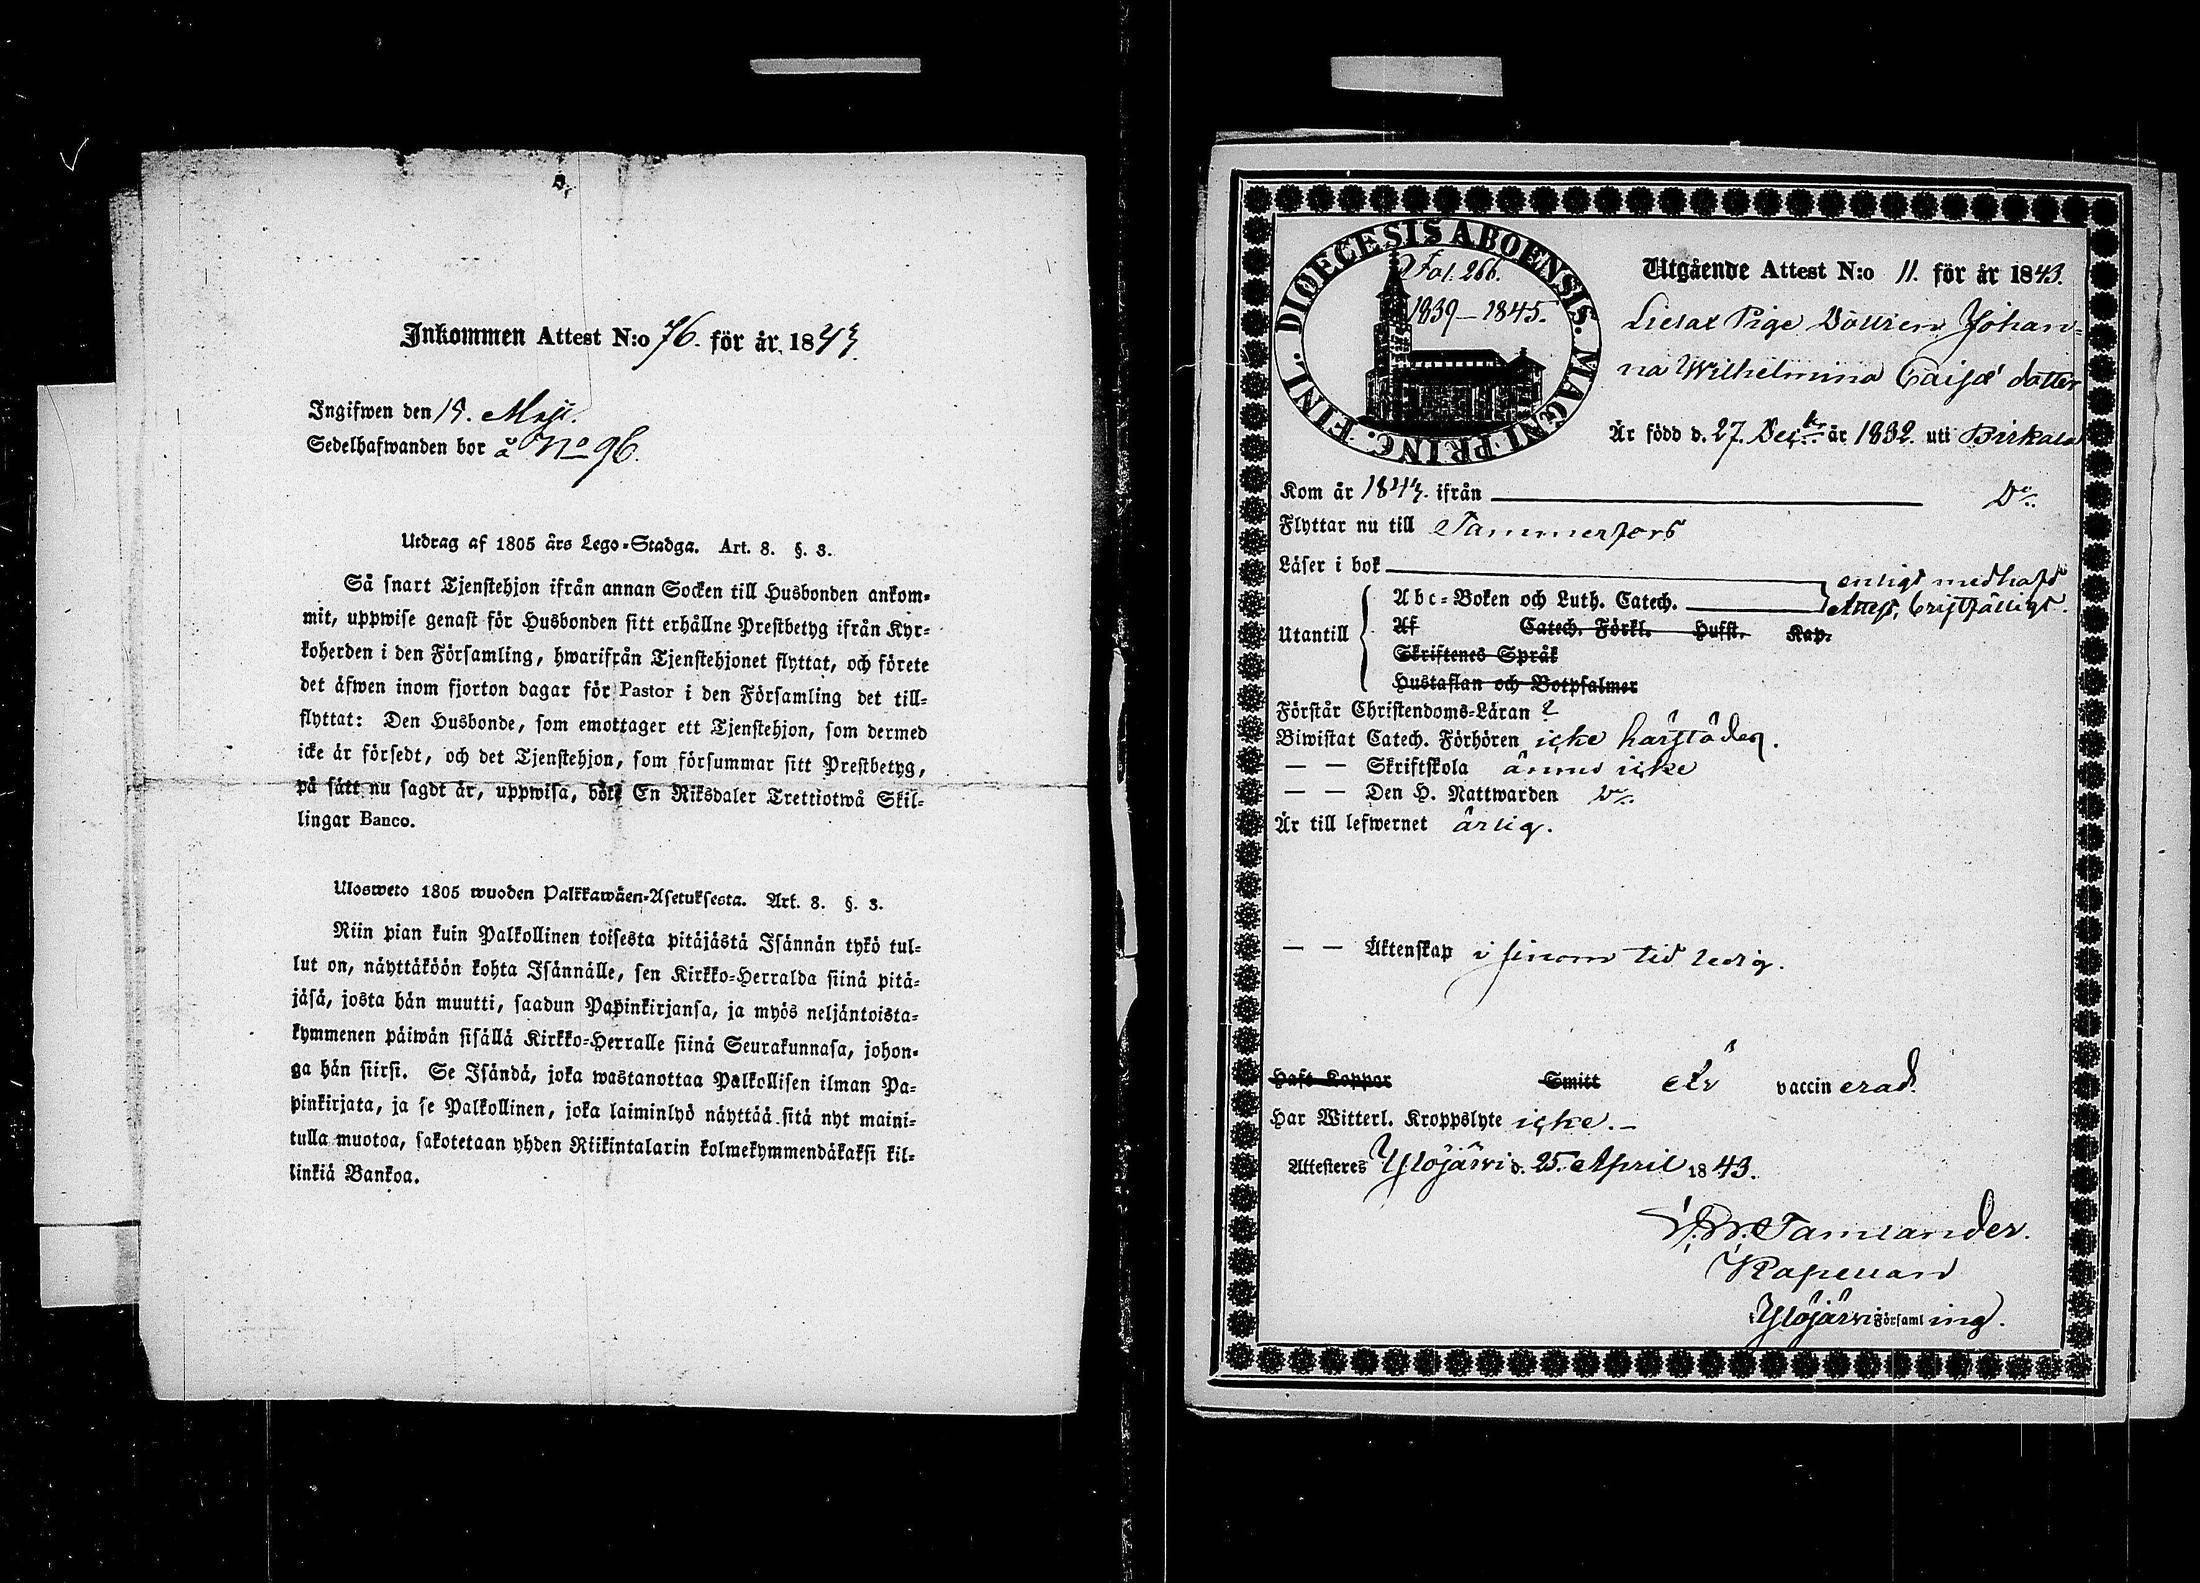 Inkommen Attest N:o 76. för år 1843.
Ingifwen den 15. Maji.
Sedelhafwanden bor å No 96.
Utdrag af 1805 års Lego-Stadga. Art. 8. §. 3.
Så snart Tjenstehjon ifrån annan Socken till Husbonden ankom-
mit, uppwise genast för Husbonden sitt erhållne Prestbetyg ifrån Kyr-
koherden i den Församling, hwarifrån Tjenstehjonet flyttat, och förete
det äfwen inom fjorton dagar för Pastor i den Församling det till-
flyttat: Den Husbonde, som emottager ett Tjenstehjon, som dermed
icke är försedt, och det Tjenstehjon, som försummar sitt Prestbetyg,
på sätt nu sagdt är, uppwisa, böte En Riksdaler Trettiotwå Skil-
lingar Banco.
Ulosweto 1805 wuoden Palkkawäen-Asetuksesta. Art. 8. §. 3.
Niin pian kuin Palkollinen toisesta pitäjästä Isännän tykö tul-
lut on, näyttäköön kohta Isännälle, sen Kirkko-Herralda siinä pitä-
jäsä, josta hän muutti, saadun Papinkirjansa, ja myös neljäntoista-
kymmenen päiwän sisällä Kirkko-Herralle siinä Seurakunnasa, johon-
ga hän siirsi. Se Isändä, joka wastanottaa Palkollisen ilman Pa-
pinkirjata, ja se Palkollinen, joka laiminlyö näyttää sitä nyt maini-
tulla muotoa, sakotetaan yhden Riikintalarin kolmekymmendäkaksi kil-
linkiä Bankoa.
DIOECESIS ABOENSIS. MAGNI PRINC. FINL.
Fol. 266.
1839-1845.
Utgående Attest N:o 11. för år 1843.
Pige Dottren Johan-
na Wilhelmina Caisæ dotter
Är född d. 27. Dec:br år 1832. uti Birkala
Kom år 1843. ifrån D:o
Flyttar nu till Tammerfors
Läser i bok enligt medhafd
Utantill Abc-Boken och Luth. Catech. Attest, bristfälligt.
Af Catech. Förkl. Hufst. Kap.
Skriftenes Språk
Hustaflan och Botpsalmer
Förstår Christendoms-Läran ?
Biwistat Catech. Förhören icke härstädes.
— — Skriftskola ännu icke
— — Den H. Nattwarden D:o
Är till lefwernet ärlig.
— — Äktenskap i sinom tid ledig.
Haft Koppor Smitt är vaccinerad.
Har Witterl. Kroppslyte icke.
Attesteres Ylöjärwi d. 25. April 1843.
Tamlander.
Kapellan
i Ylöjärwi Församling.